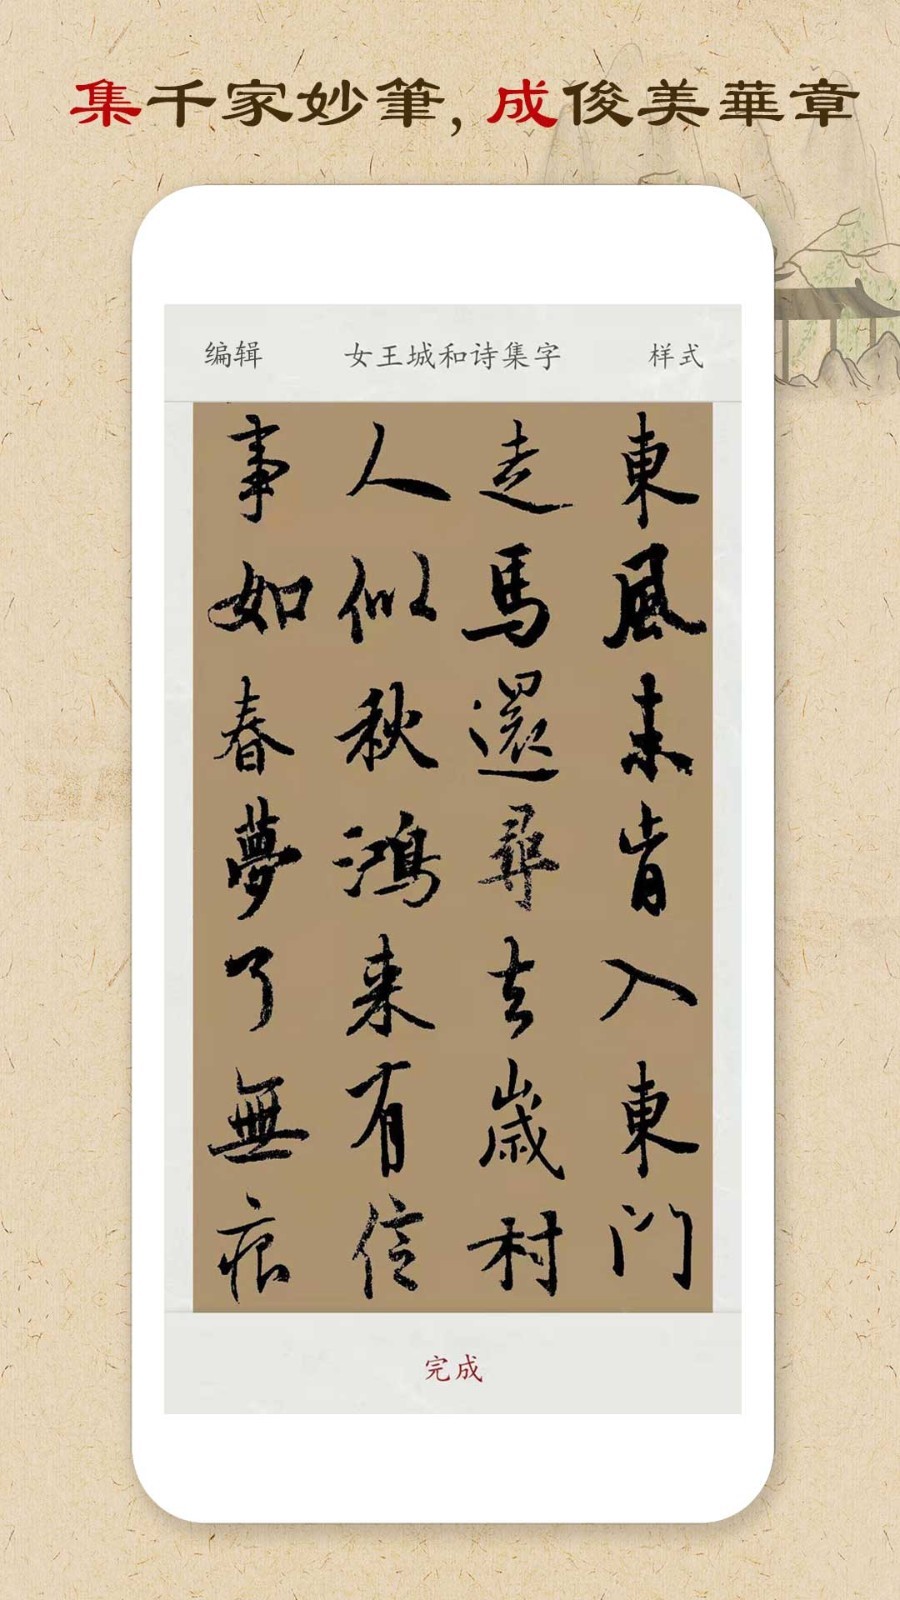 集千家妙筆,成俊美華章
编辑 女王城和诗集字 样式
東風未肯入東门
走馬還尋去歲村
人似秋鴻来有信
事如春夢了無痕
完成